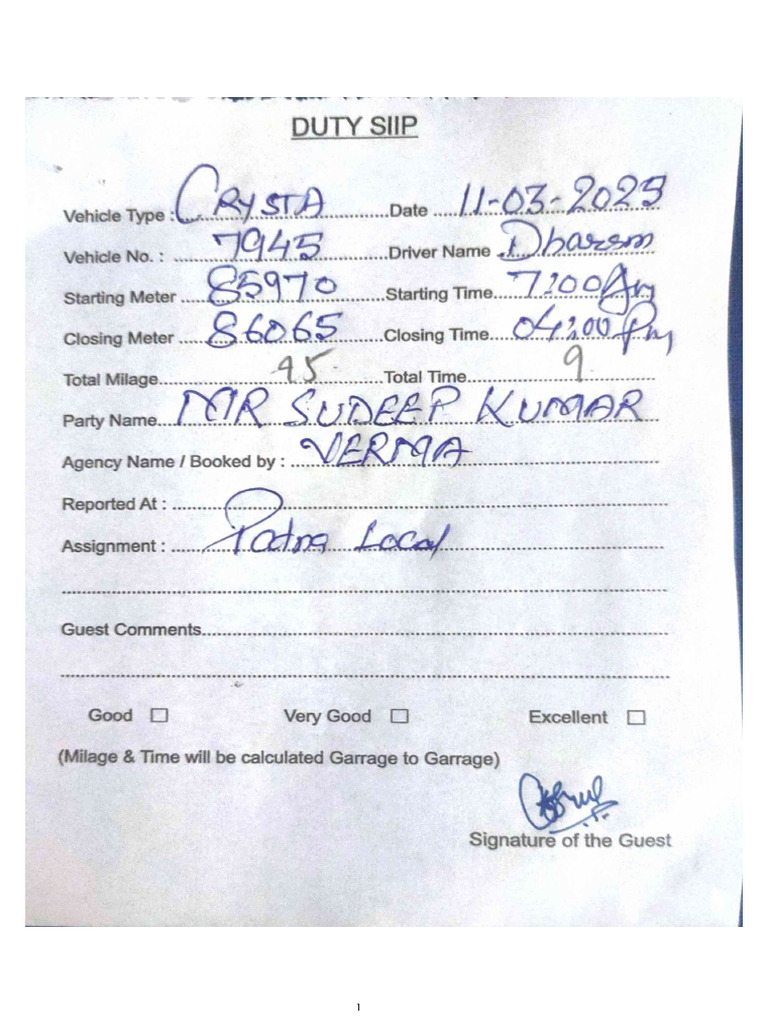 DUTY SIIP
Vehicle Type : CRYSTA Date 11-03-2025
Vehicle No. : 7945 Driver Name Dharam
Starting Meter 85970 Starting Time 7:00 Am
Closing Meter 86065 Closing Time 04:00 Pm
Total Milage 95 Total Time 9
Party Name MR SUDEEP KUMAR
Agency Name / Booked by : VERMA
Reported At :
Assignment : Patna Local
Guest Comments
Good Very Good Excellent
(Milage & Time will be calculated Garrage to Garrage)
Signature of the Guest
1